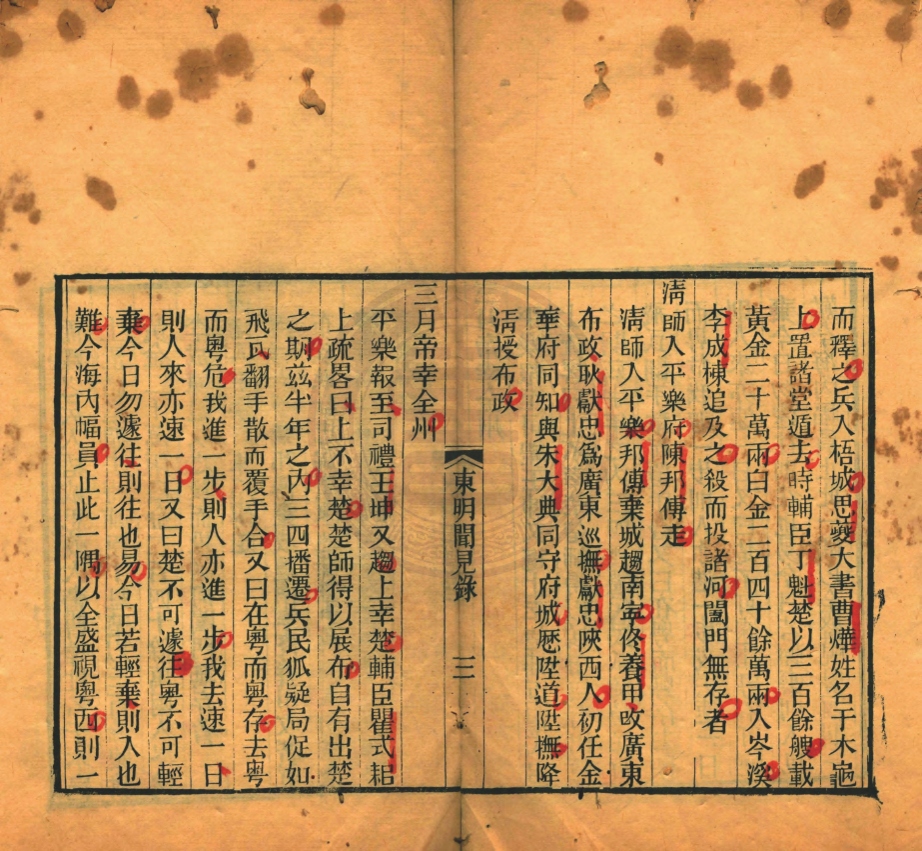 而釋之兵入梧城思夔大書曹燁姓名于木龜
上置諸堂遁去時輔臣丁魁楚以三百餘艘載
黃金二十萬兩白金二百四十餘萬兩入岑溪
李成棟追及之殺而投諸河闔門無存者
淸師入平樂府陳邦傅走
淸師入平樂邦傅棄城趨南寧佟養甲攺廣東
布政耿獻忠爲廣東巡撫獻忠陜西人初任金
華府同知與朱大典同守府城歷陞道陞撫降
淸授布政
東明聞見錄 三
三月帝幸全州
平樂報至司禮王坤又趨上幸楚輔臣瞿式耜
上疏畧曰上不幸楚楚師得以展布自有出楚
之期茲半年之內三四播遷兵民狐疑局促如
飛瓦翻手散而覆手合又曰在粵而粵存去粵
而粵危我進一步則人亦進一步我去速一日
則人來亦速一日又曰楚不可遽往粵不可輕
棄今日勿遽往則往也易今日若輕棄則入也
難今海內幅員止此一隅以全盛視粵西則一